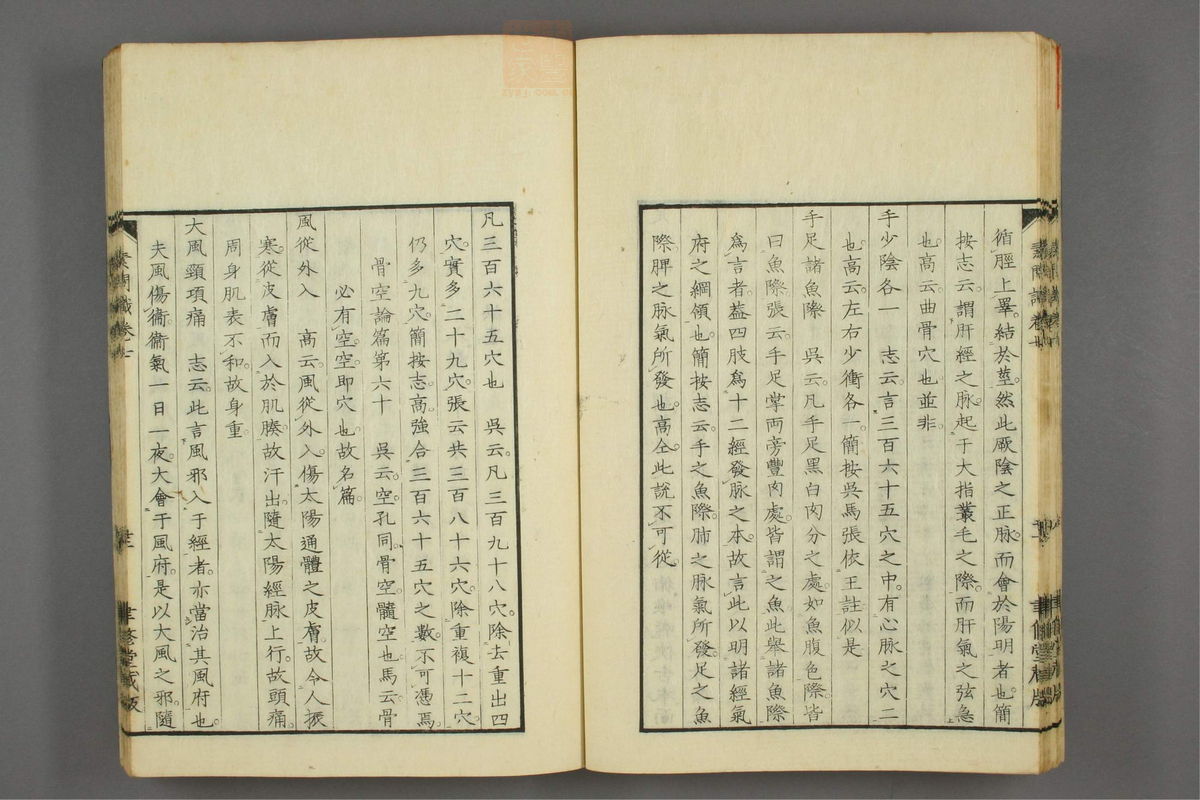 循脛上睪結於莖然此厥陰之正脉而會於陽明者也簡
按志云謂肝經之脉起于大指叢毛之際而肝氣之弦急
也高云曲骨穴也並非
手少陰各一　志云言三百六十五穴之中有心脉之穴二
也高云左右少衝各一簡按吳馬張依王註似是
手足諸魚際　吳云凡手足黑白肉分之處如魚腹色際皆
曰魚際張云手足掌兩旁豐肉處皆謂之魚此舉諸魚際
爲言者蓋四肢爲十二經發脉之本故言此以明諸經氣
府之綱領也簡按志云手之魚際肺之脉氣所發足之魚
際脾之脉氣所發也高仝此說不可從
凡三百六十五穴也　吳云凡三百九十八穴除去重出四
穴實多二十九穴張云共三百八十六穴除重複十二穴
仍多九穴簡按志高強合三百六十五穴之數不可憑焉
骨空論篇第六十　吳云空孔同骨空髓空也馬云骨
必有空空即穴也故名篇
風從外入　高云風從外入傷太陽通體之皮膚故令人振
寒從皮膚而入於肌腠故汗出隨太陽經脉上行故頭痛
周身肌表不和故身重
大風頸項痛　志云此言風邪入于經者亦當治其風府也
夫風傷衞衞氣一日一夜大會于風府是以大風之邪隨
素問識卷七
聿修堂藏版